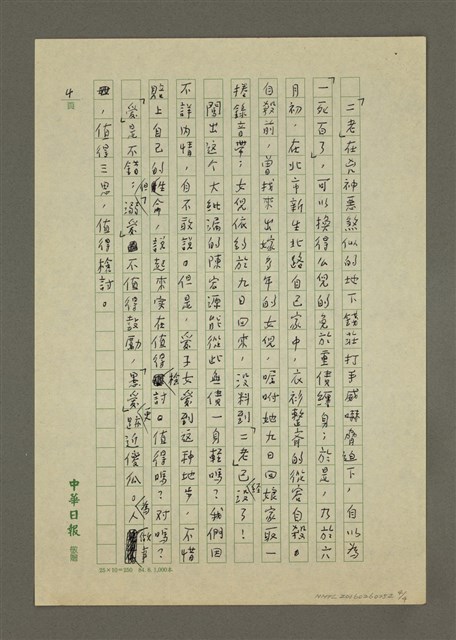 「二老」在兇神惡煞似的地下錢莊打手威嚇脅迫下，自以為
「一死百了」，可以換得么兒的免於重債纏身；於是，乃於六
月初，在北市新生北路自己家中，衣衫整齊的從容自殺。
自殺前，曾找來出嫁多年的女兒，囑咐她九日回娘家取一
捲錄音帶；女兒依約於九日回來，沒料到二老已經沒了！
闖出这个大紕漏的陳容源能從此無債一身輕嗎？我們因
不詳內情，自不敢說。但是，愛子女愛到这种地步，不惜
賠上自己的性命，說起來实在值得檢討。值得嗎？对嗎？
「愛」是不錯；但「溺愛」不值得鼓勵，「愚愛」更
近傻瓜。為人
，值得三思，值得檢討。
4
頁
中華日報
25×10=250 84. 8. 1,000本
NMTL20160260052 4/4